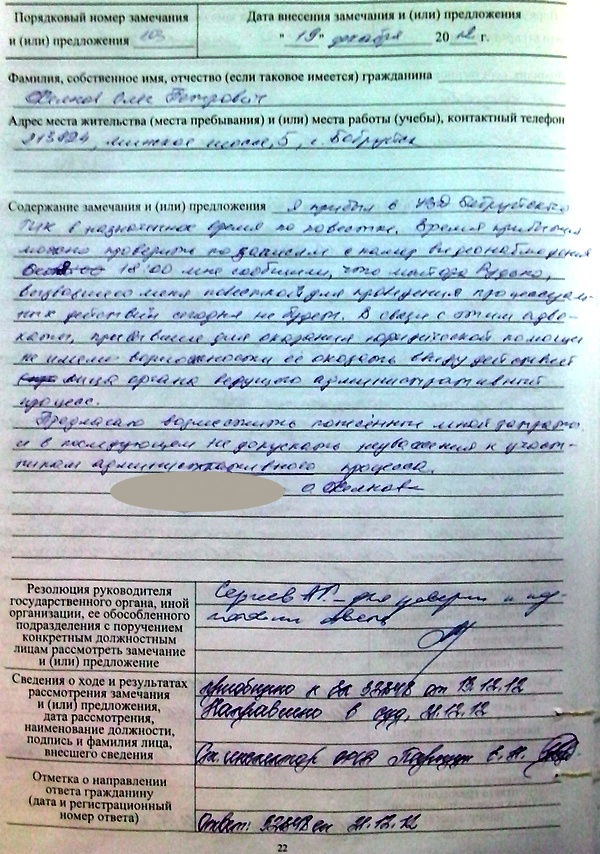 Порядковый номер замечания
и (или) предложения 103
Дата внесения замечания и (или) предложения
" 19 " декабря 2012 г.
Фамилия, собственное имя, отчество (если таковое имеется) гражданина
Олег Петрович
Адрес места жительства (места пребывания) и (или) места работы (учебы), контактный телефон
Минское шоссе, 5, г. Бобруйск
Содержание замечания и (или) предложения Я прибыл в УВД Бобруйского
ГИК в назначенное время по повестке. Время прибытия
можно проверить по записям с камер видеонаблюдения
18:00 мне сообщили, что майора
вызвавшего меня повесткой для проведения процессуаль-
ных действий сегодня не будет. В связи с этим адво-
каты, прибывшие для оказания юридической помощи
не имели возможности ее оказать ввиду действий
лица органа ведущего административный
процесс.
Предлагаю возместить понесённые мной затраты
и в последующем не допускать неуважения к участ-
никам административного процесса.
Резолюция руководителя
государственного органа, иной
организации, ее обособленного
подразделения с поручением
конкретным должностным
лицам рассмотреть замечание
и (или) предложение
Сергеев А.Г. - для
ответа
Сведения о ходе и результатах
рассмотрения замечания
и (или) предложения,
дата рассмотрения,
наименование должности,
подпись и фамилия лица,
внесшего сведения
приобщено к 19.12.12
Направлено в суд, 21.12.12
Ст. инспектор
Отметка о направлении
ответа гражданину
(дата и регистрационный
номер ответа)
Ответ: 21.12.12
22